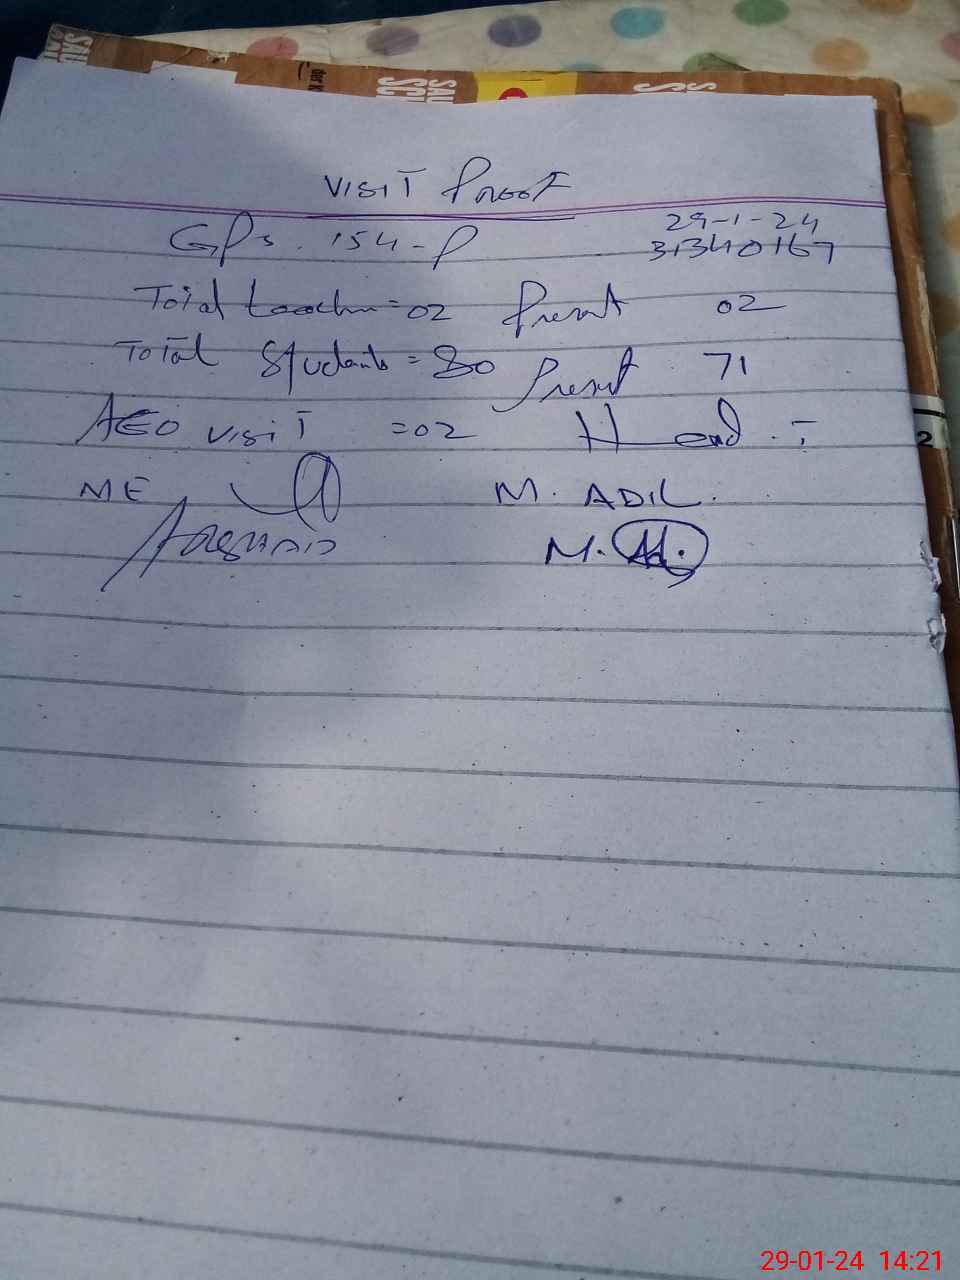 VISIT PROOF
GPs. 154-P 29-1-24
31340167
Total teacher = 02 Present 02
Total Students = 80 Present 71
AEO visit = 02 Head :-
ME M. ADIL.
M. Adil
29-01-24 14:21